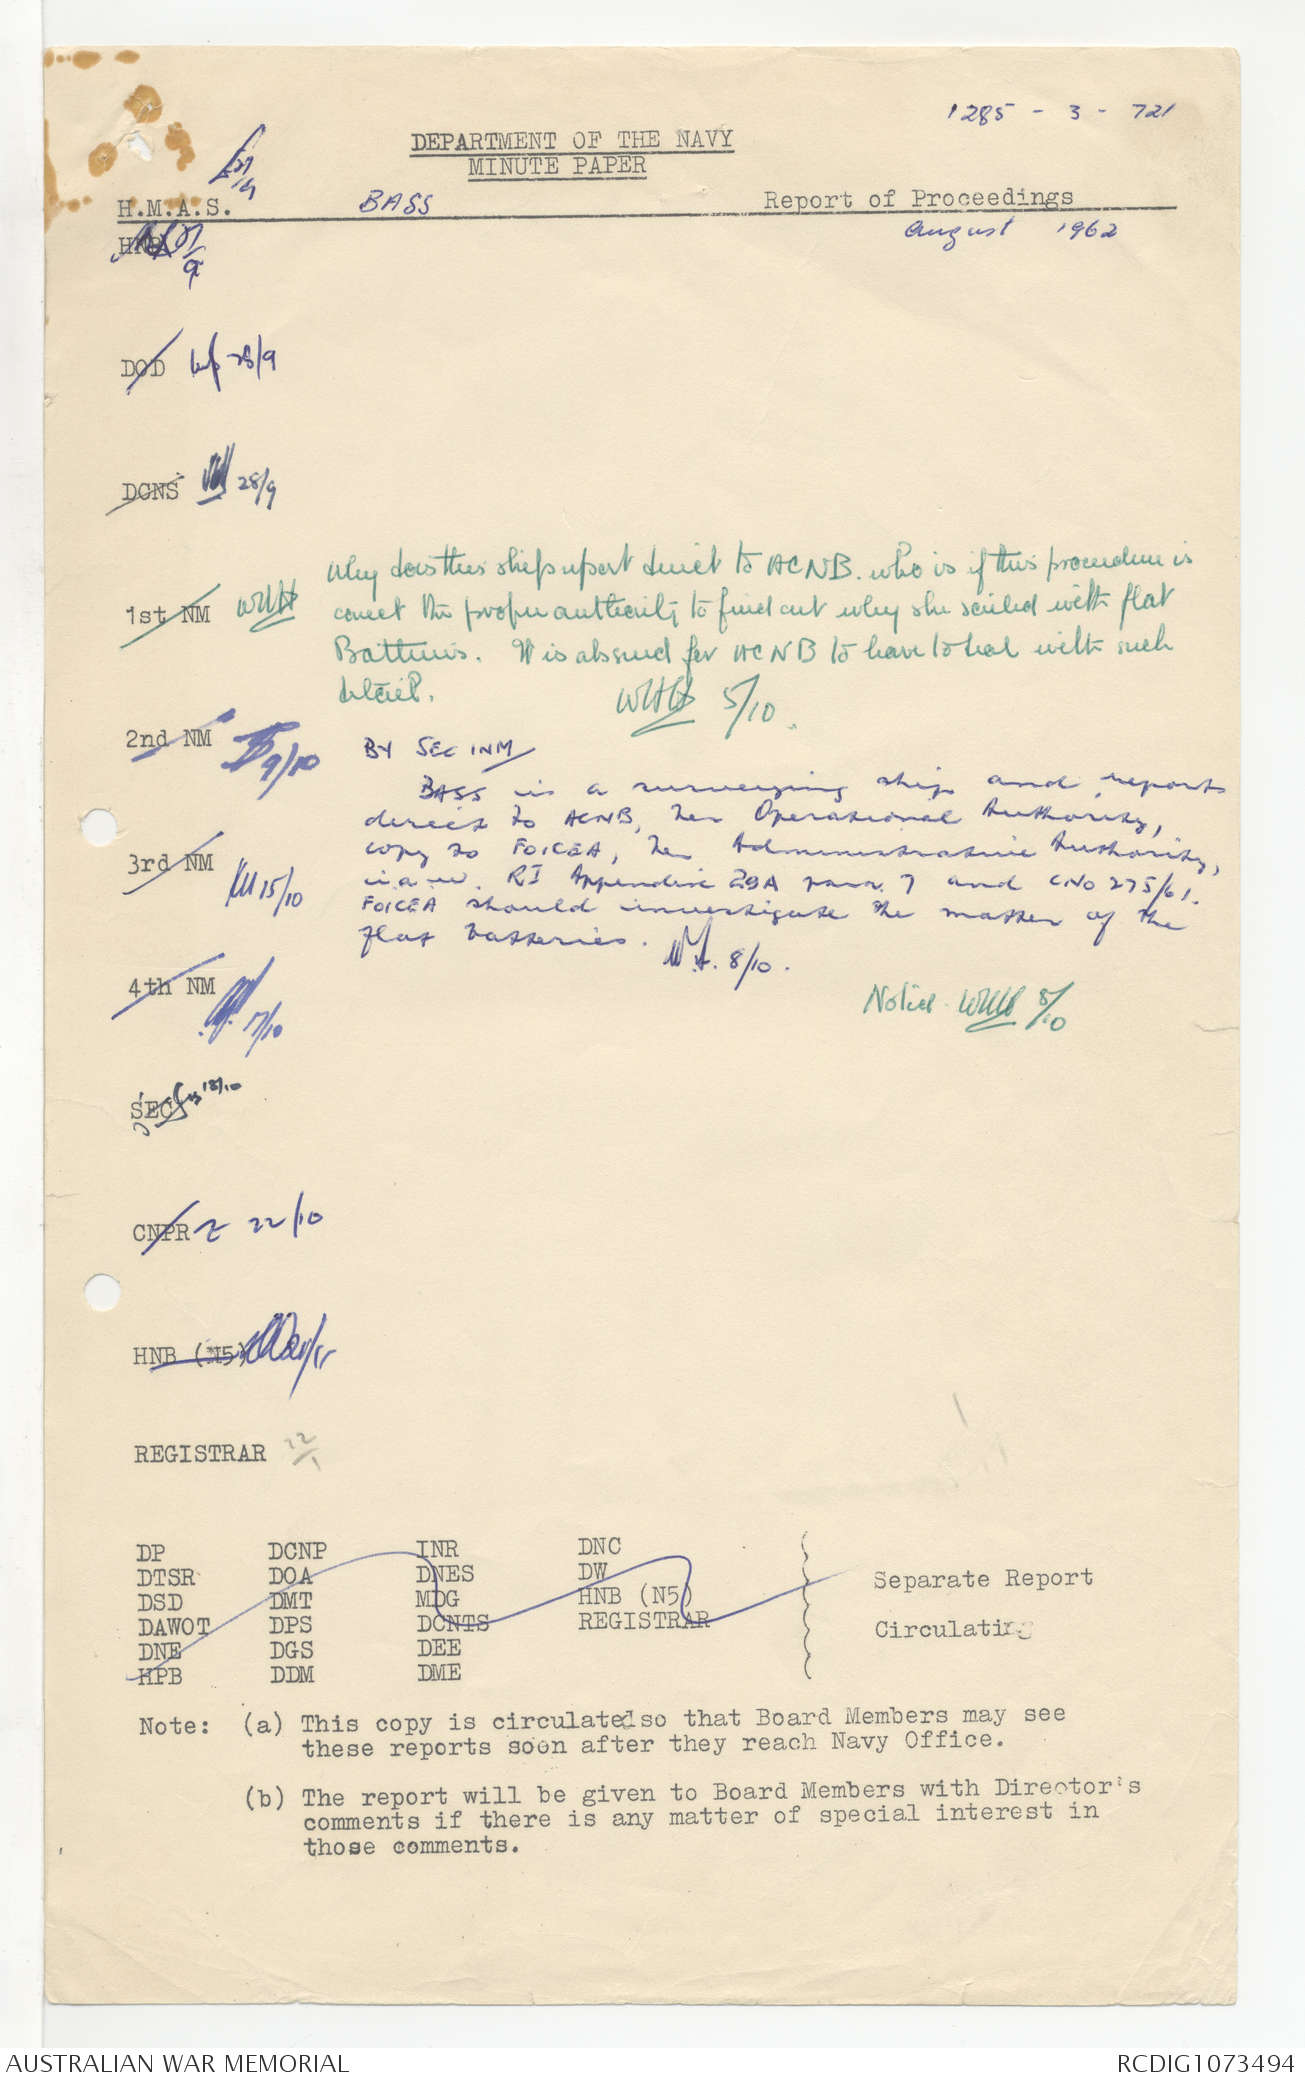 1285 - 3 - 721
DEPARTMENT OF THE NAVY
MINUTE PAPER
H.M.A.S. BASS Report of Proceedings
August 1962
HNB
9
DOD 28/9
DCNS 28/9
Why does this ship report direct to ACNB. who is if this procedure is
1st NM WHH correct the proper authority to find out why she sailed with flat
Batteries. It is absurd for ACNB to have to deal with such
detail.
WHH 5/10.
2nd NM 9/10
BY SEC 1NM
BASS is a surveying ship and reports
direct to ACNB, her Operational Authority,
copy to FOICEA, her Administrative Authority,
3rd NM 15/10
i.a.w. RI Appendix 29A para. 7 and CNO 275/61.
FOICEA should investigate the matter of the
flat batteries. 8/10.
4th NM 17/10
Noted. WHH 8/10
SEC 18/10
CNPR 22/10
HNB (N5)
REGISTRAR 22/1
DP DCNP INR DNC
DTSR DOA DNES DW
DSD DMT MDG HNB (N5)
DAWOT DPS DCNTS REGISTRAR
DNE DGS DEE
HPB DDM DME
Separate Report
Circulating
Note: (a) This copy is circulated so that Board Members may see
these reports soon after they reach Navy Office.
(b) The report will be given to Board Members with Director's
comments if there is any matter of special interest in
those comments.
AUSTRALIAN WAR MEMORIAL RCDIG1073494